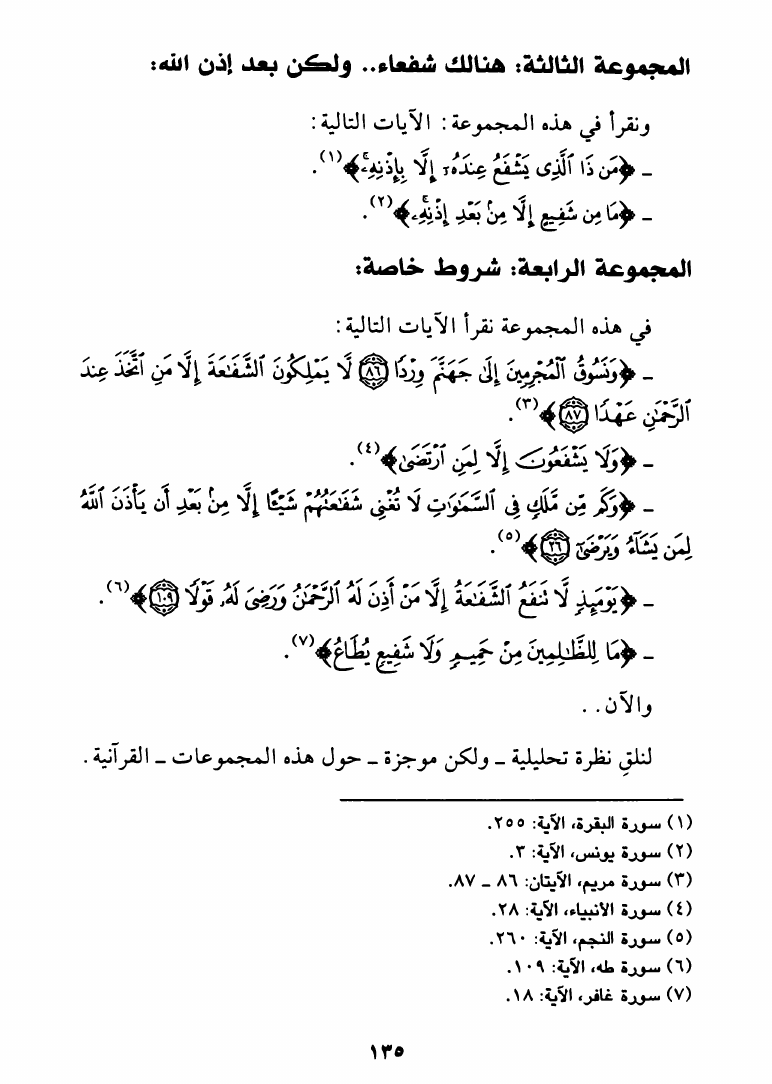 المجموعة الثالثة: هنالك شفعاء.. ولكن بعد إذن الله:
ونقرأ في هذه المجموعة: الآيات التالية:
ـ ﴿مَن ذَا ٱلَّذِى يَشْفَعُ عِندَهُۥٓ إِلَّا بِإِذْنِهِۦ﴾(١).
ـ ﴿مَا مِن شَفِيعٍ إِلَّا مِنۢ بَعْدِ إِذْنِهِۦ﴾(٢).
المجموعة الرابعة: شروط خاصة:
في هذه المجموعة نقرأ الآيات التالية:
ـ ﴿وَنَسُوقُ ٱلْمُجْرِمِينَ إِلَىٰ جَهَنَّمَ وِرْدًا ٨٦ لَّا يَمْلِكُونَ ٱلشَّفَٰعَةَ إِلَّا مَنِ ٱتَّخَذَ عِندَ
ٱلرَّحْمَٰنِ عَهْدًا ٨٧﴾(٣).
ـ ﴿وَلَا يَشْفَعُونَ إِلَّا لِمَنِ ٱرْتَضَىٰ﴾(٤).
ـ ﴿وَكَم مِّن مَّلَكٍ فِى ٱلسَّمَٰوَٰتِ لَا تُغْنِى شَفَٰعَتُهُمْ شَيْـًٔا إِلَّا مِنۢ بَعْدِ أَن يَأْذَنَ ٱللَّهُ
لِمَن يَشَآءُ وَيَرْضَىٰٓ ٢٦﴾(٥).
ـ ﴿يَوْمَئِذٍ لَّا تَنفَعُ ٱلشَّفَٰعَةُ إِلَّا مَنْ أَذِنَ لَهُ ٱلرَّحْمَٰنُ وَرَضِىَ لَهُۥ قَوْلًا ١٠٩﴾(٦).
ـ ﴿مَا لِلظَّٰلِمِينَ مِنْ حَمِيمٍ وَلَا شَفِيعٍ يُطَاعُ﴾(٧).
والآن..
لنلقِ نظرة تحليلية ـ ولكن موجزة ـ حول هذه المجموعات ـ القرآنية.
(١) سورة البقرة، الآية: ٢٥٥.
(٢) سورة يونس، الآية: ٣.
(٣) سورة مريم، الآيتان: ٨٦ ـ ٨٧.
(٤) سورة الأنبياء، الآية: ٢٨.
(٥) سورة النجم، الآية: ٢٦٠.
(٦) سورة طه، الآية: ١٠٩.
(٧) سورة غافر، الآية: ١٨.
١٣٥